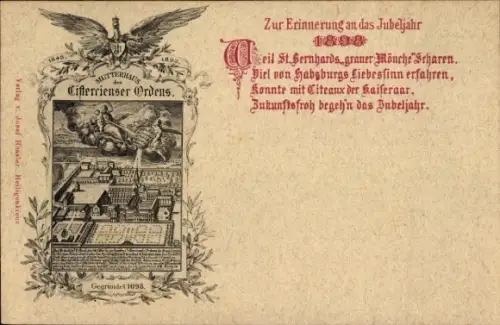 Zur Erinnerung an das Jubeljahr
1898
Weil St. Bernhards „grauer Mönche“ Scharen.
Viel von Habsburgs Liebessinn erfahren,
Konnte mit Citeaux der Kaiseraar,
Zukunftsfroh begeh'n das Jubeljahr.
1848
1898
MUTTERHAUS
des
Cistercienser Ordens.
Gegründet 1098.
Verlag v. Josef Heiligenkreuz